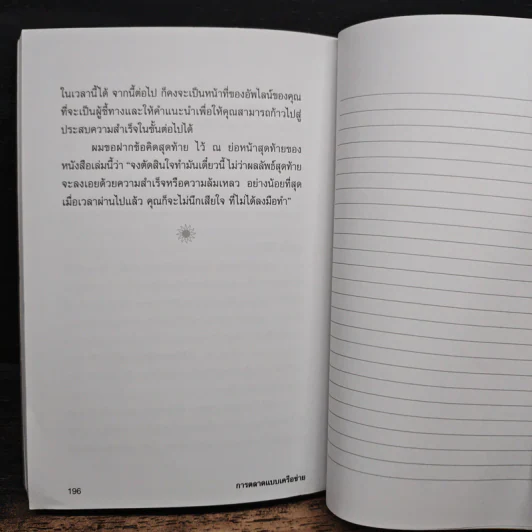 ในเวลานี้ได้ จากนี้ต่อไป ก็คงจะเป็นหน้าที่ของอัพไลน์ของคุณ
ที่จะเป็นผู้ชี้ทางและให้คำแนะนำเพื่อให้คุณสามารถก้าวไปสู่
ประสบความสำเร็จในขั้นต่อไปได้
ผมขอฝากข้อคิดสุดท้าย ไว้ ณ ย่อหน้าสุดท้ายของ
หนังสือเล่มนี้ว่า “จงตัดสินใจทำมันเดี๋ยวนี้ ไม่ว่าผลลัพธ์สุดท้าย
จะลงเอยด้วยความสำเร็จหรือความล้มเหลว อย่างน้อยที่สุด
เมื่อเวลาผ่านไปแล้ว คุณก็จะไม่นึกเสียใจ ที่ไม่ได้ลงมือทำ”
196
การตลาดแบบเครือข่าย